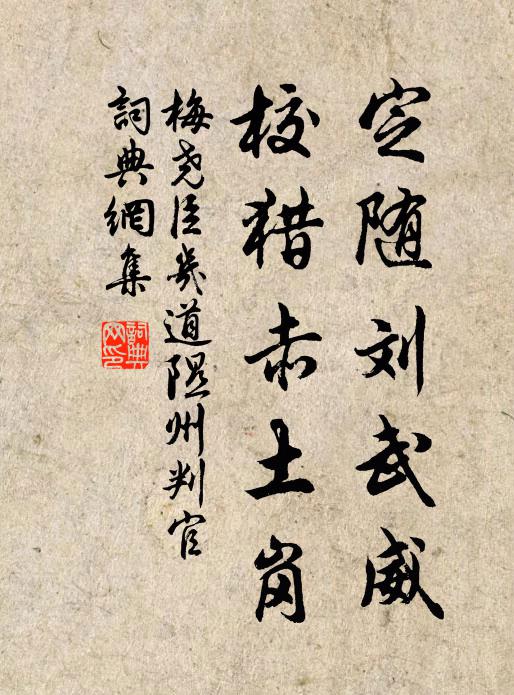 定随刘武威
校猎赤土岗
梅尧臣幾道隰州判官
詞典網集
詞典網印